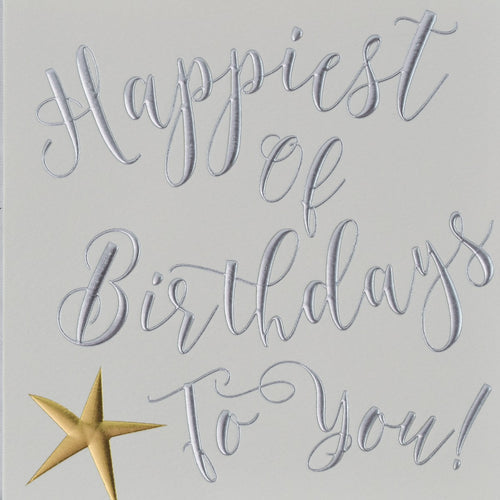 Happiest
Of
Birthdays
To You!